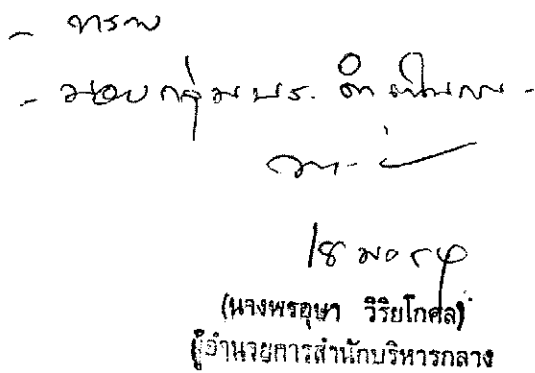 - ทราบ
- มอบกลุ่ม บร. ดำเนินการ -
(นางพรอุษา วิริยโกศล)
ผู้อำนวยการสำนักบริหารกลาง